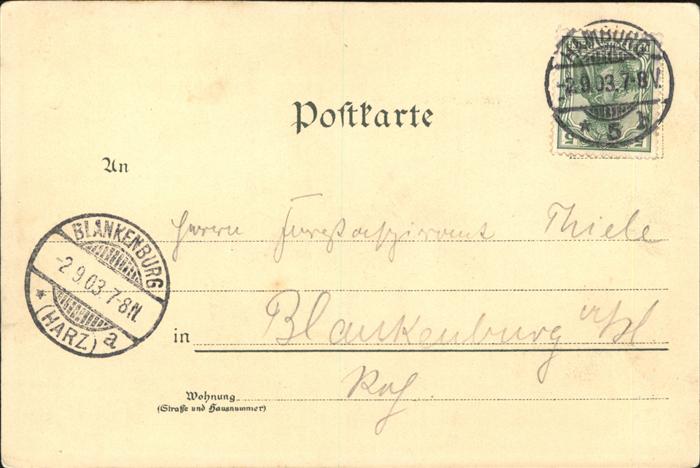 HAMBURG
-2.9.03.7-8V.
* 5 b
Postkarte
An
Herrn Forstaspirant Thiele
BLANKENBURG
-2.9.03.7-8N.
* (HARZ) a
in Blankenburg a/H.
Wohnung
(Straße und Hausnummer)